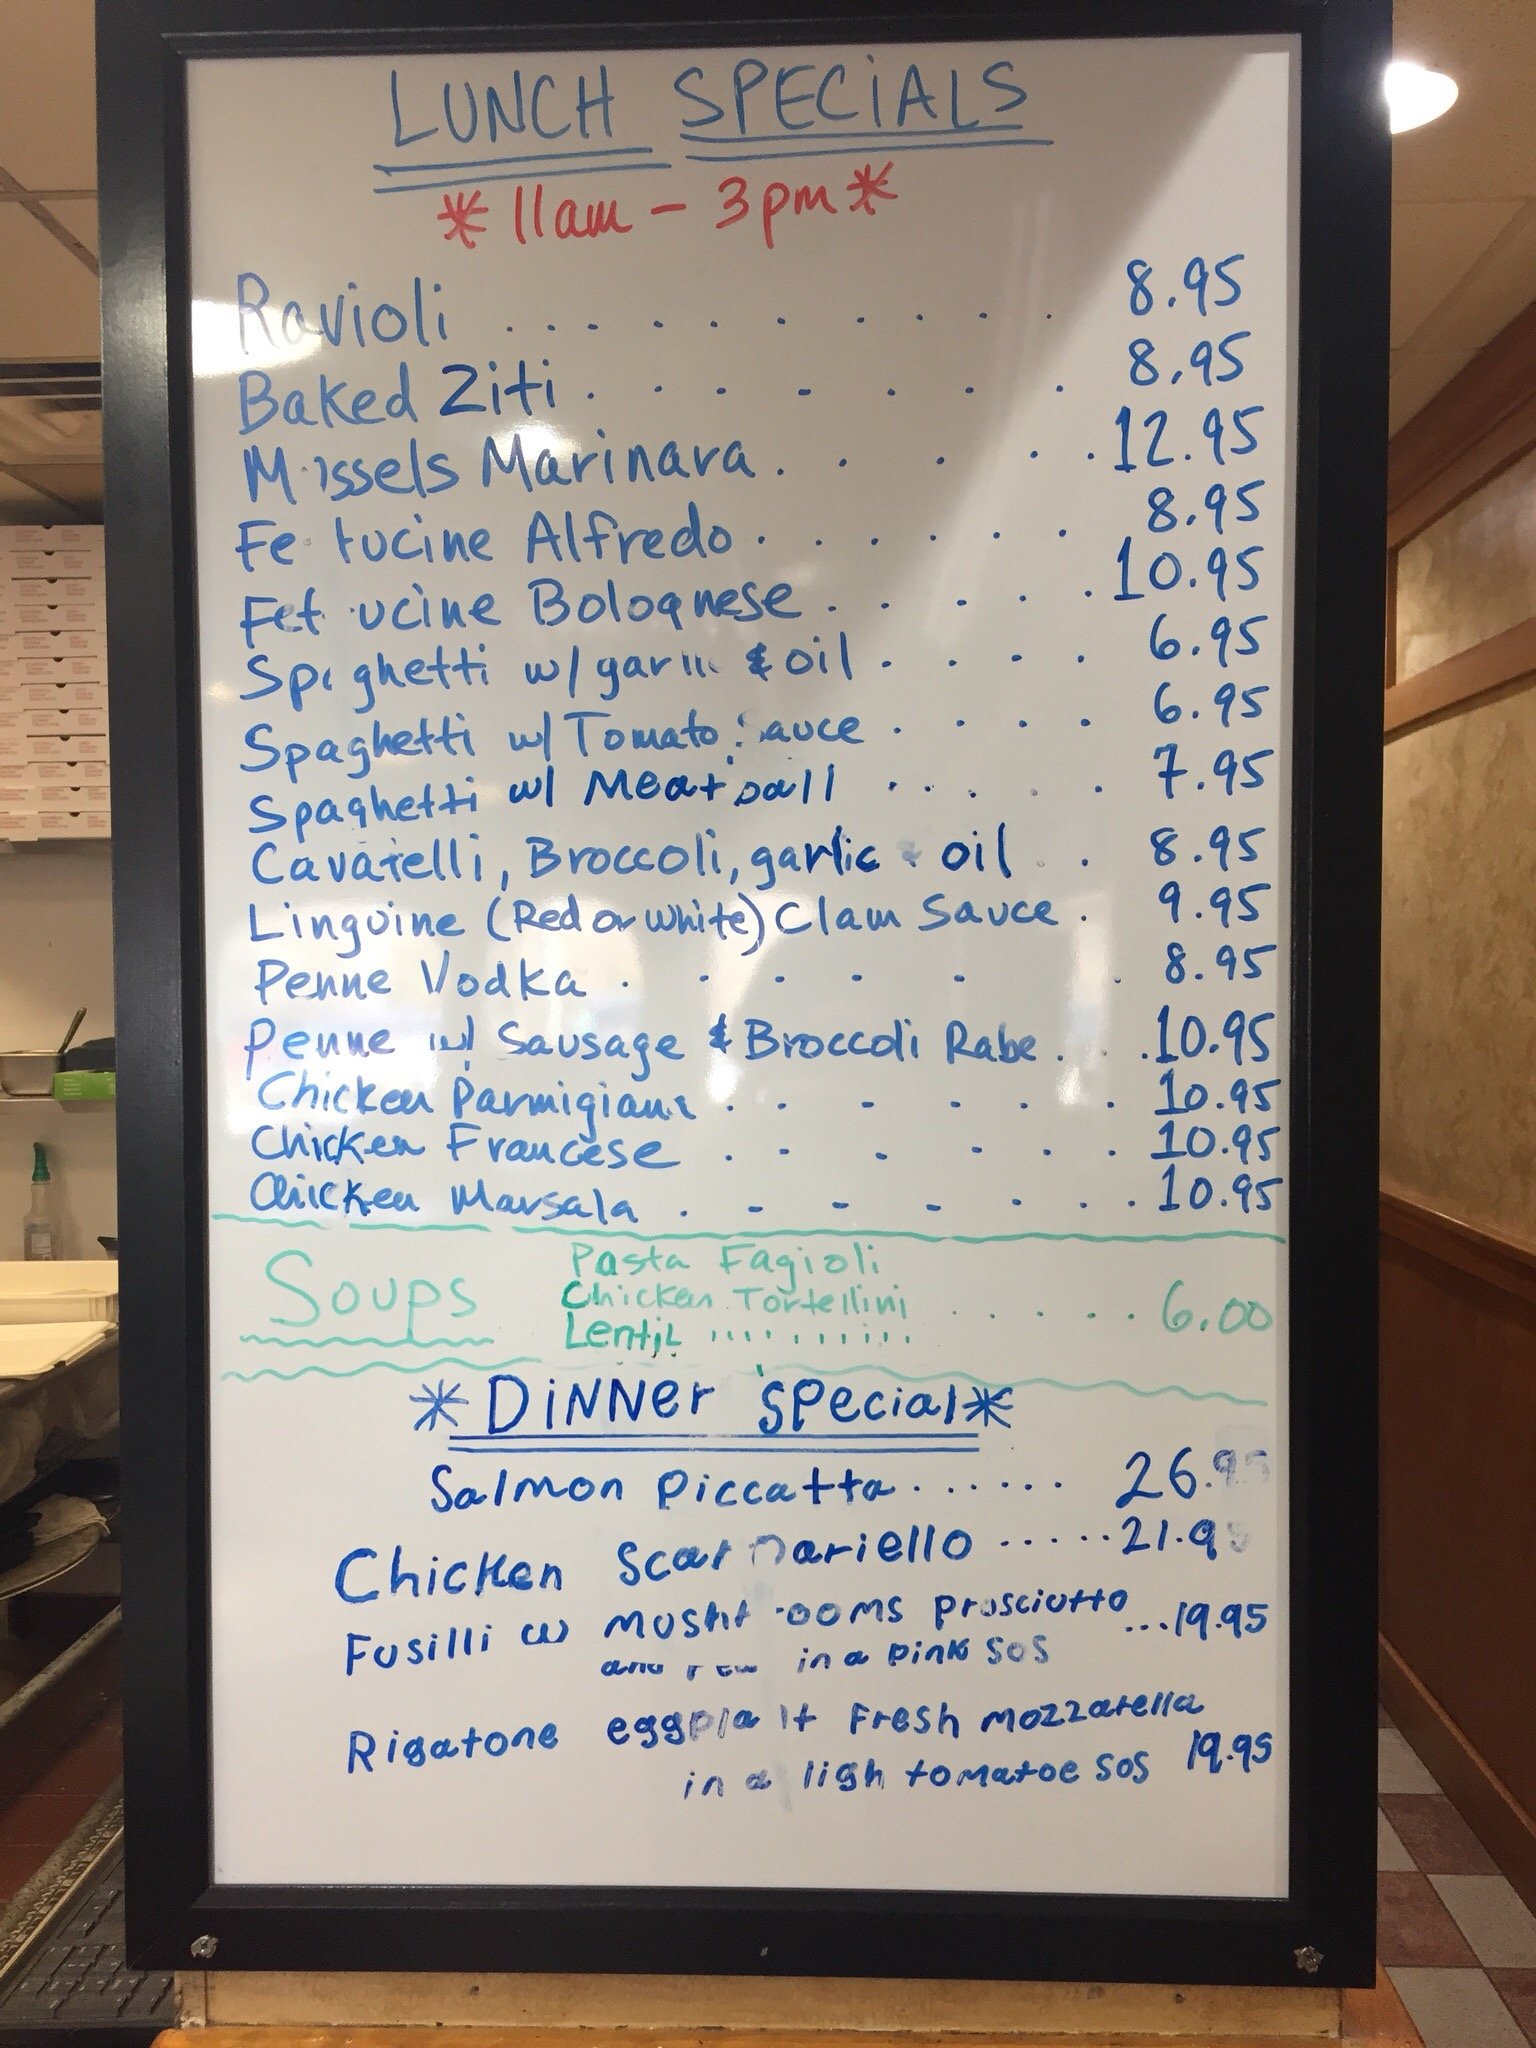 LUNCH SPECIALS
*11am - 3pm*
Ravioli .......... 8.95
Baked Ziti ....... 8.95
Mussels Marinara ..... 12.95
Fettucine Alfredo ...... 8.95
Fettucine Bolognese ..... 10.95
Spaghetti w/ garlic & oil .... 6.95
Spaghetti w/ Tomato Sauce .... 6.95
Spaghetti w/ Meatball ..... 7.95
Cavatelli, Broccoli, garlic & oil .. 8.95
Linguine (Red or White) Clam Sauce . 9.95
Penne Vodka ...... 8.95
Penne w/ Sausage & Broccoli Rabe ... 10.95
Chicken Parmigiana ...... 10.95
Chicken Francese ...... 10.95
Chicken Marsala ....... 10.95
Soups
Pasta Fagioli
Chicken Tortellini ..... 6.00
Lentil ..........
*DiNNer Special*
Salmon Piccatta ...... 26.95
Chicken Scarpariello ..... 21.95
Fusilli w mushrooms prosciutto ...19.95
in a pink sos
Rigatone eggplant Fresh mozzarella
in a ligh tomatoe sos 19.95